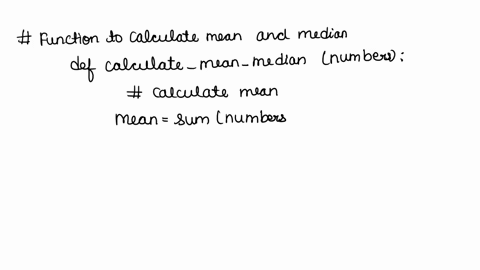 # Function to calculate mean and median
def calculate_mean_median (numbers):
# calculate mean
mean = sum (numbers